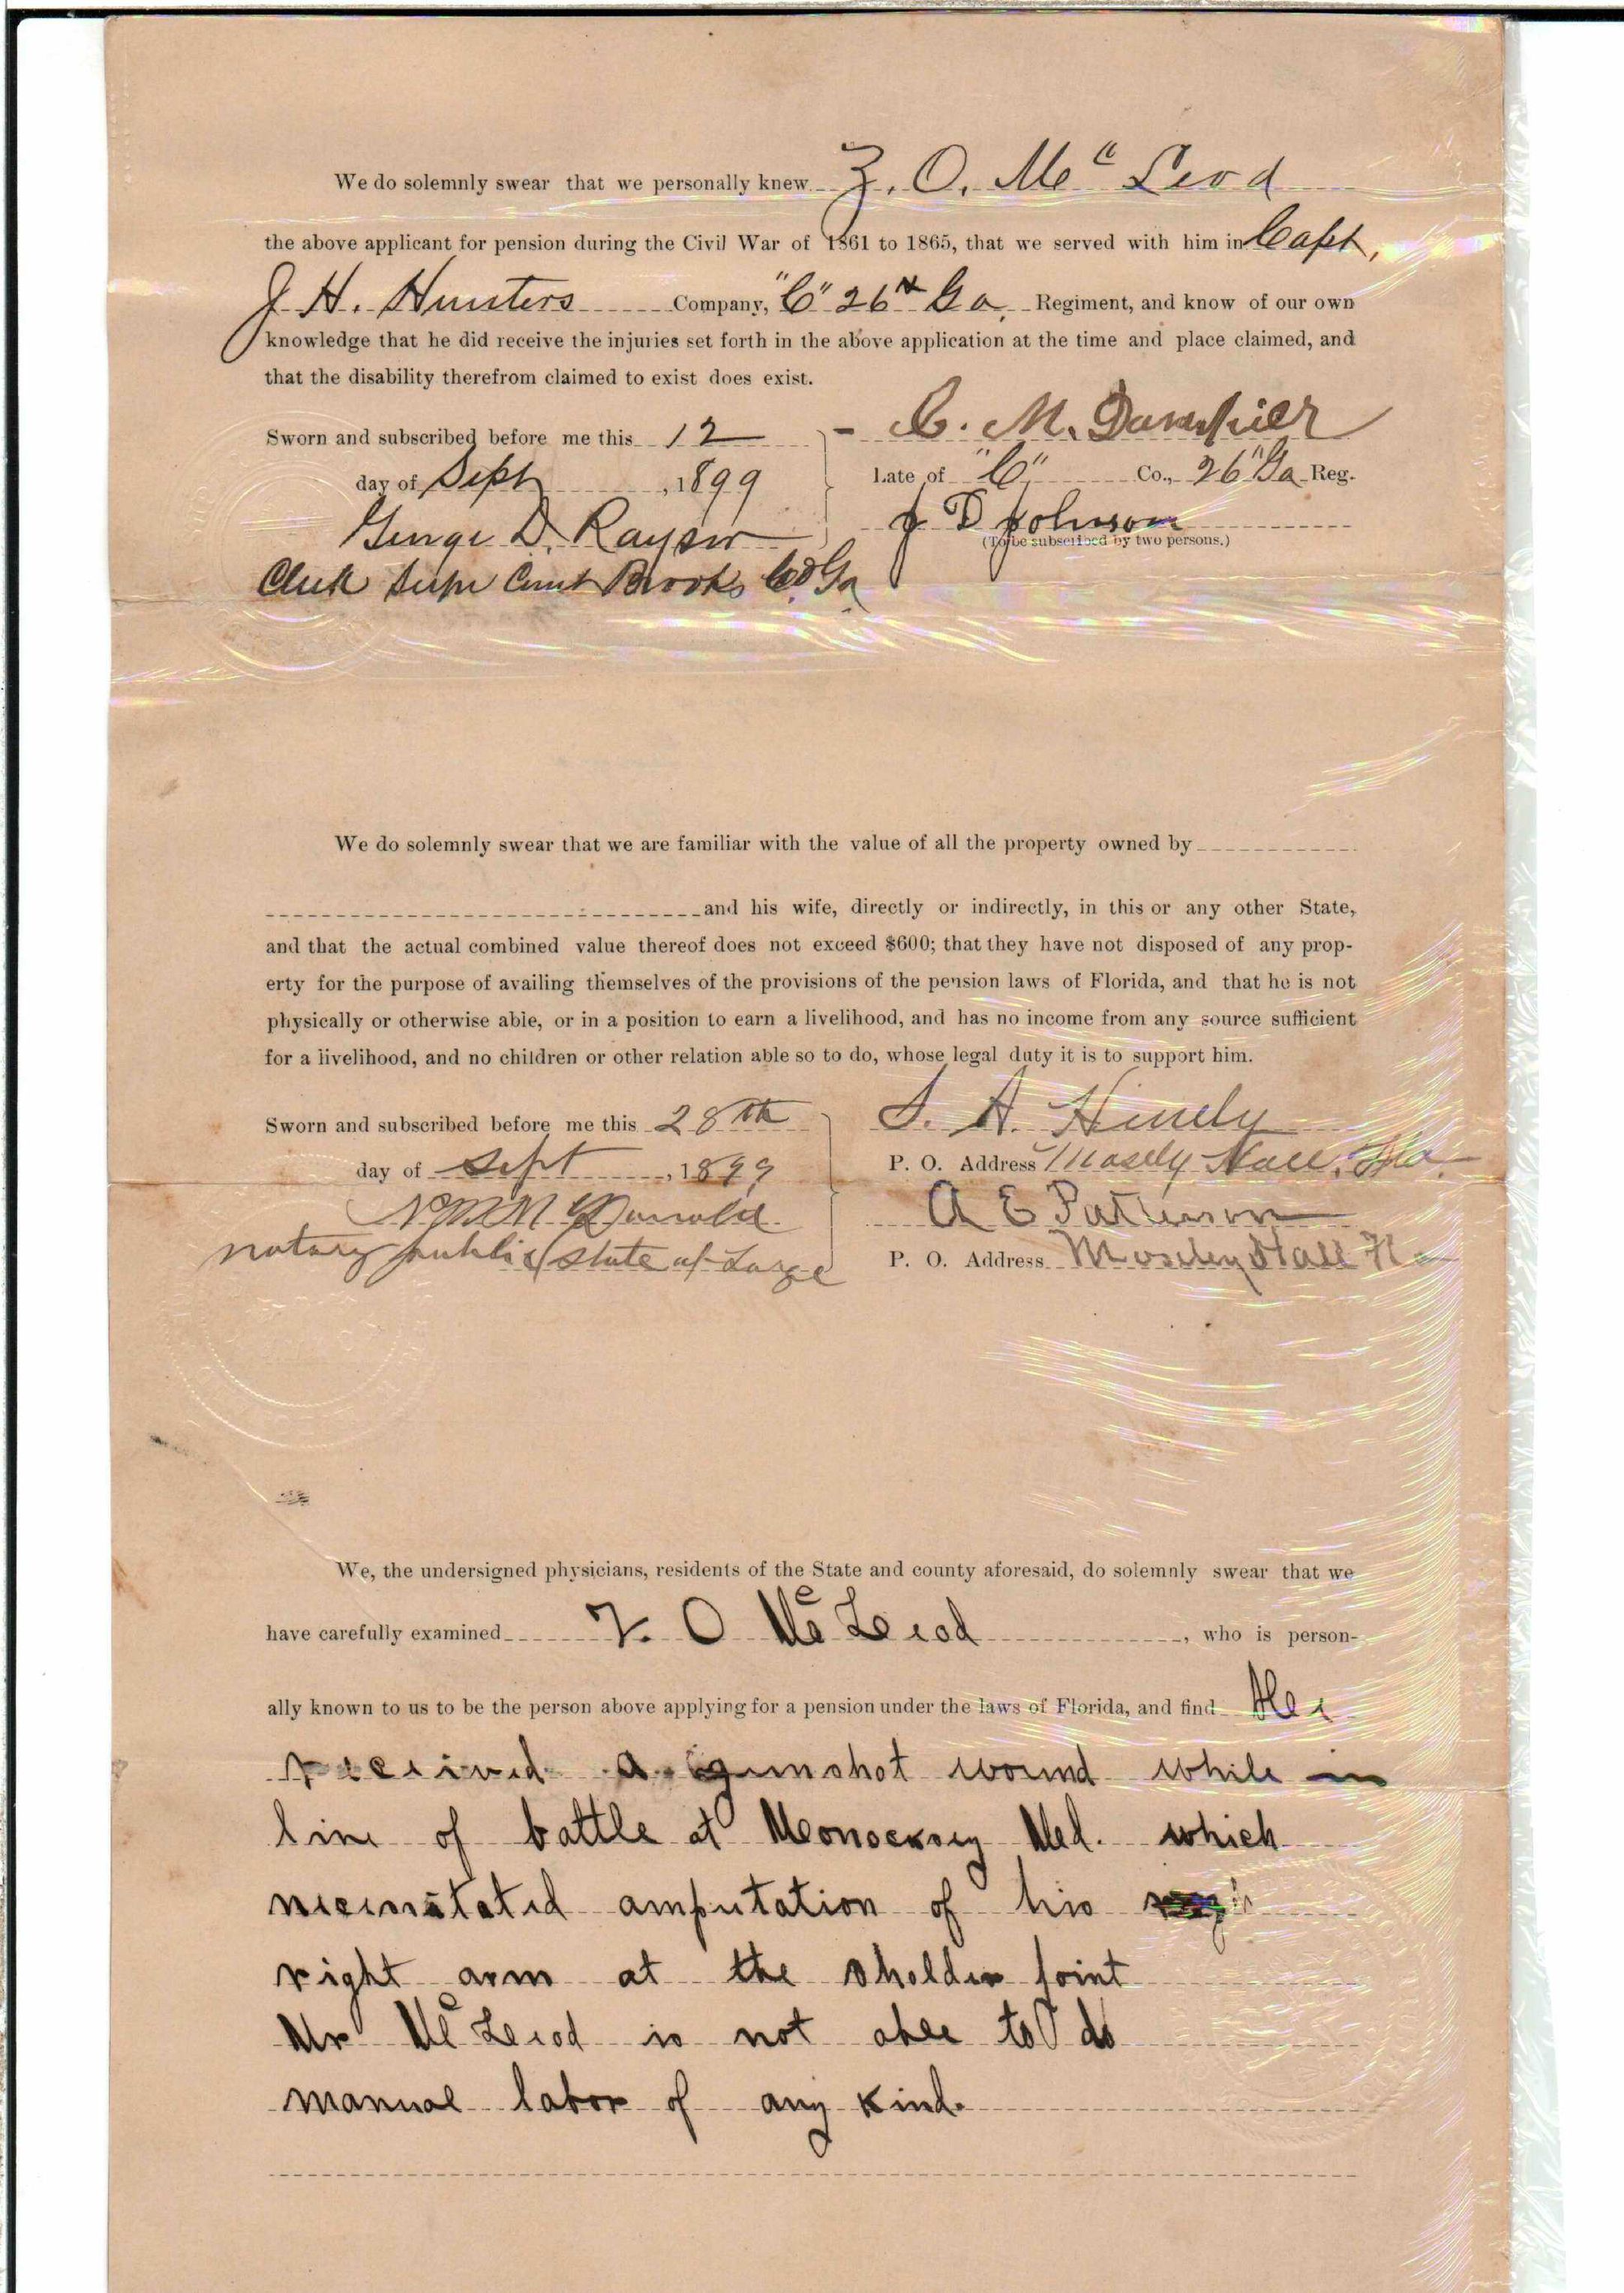 We do solemnly swear that we personally knew Z. O. Mc Leod
the above applicant for pension during the Civil War of 1861 to 1865, that we served with him in Capt,
J. H. Hunters Company, "C" 26th Ga. Regiment, and know of our own
knowledge that he did receive the injuries set forth in the above application at the time and place claimed, and
that the disability therefrom claimed to exist does exist.
Sworn and subscribed before me this 12
day of Sept, 1899
George D. Raysor
Clerk Supr Court Brooks Co Ga
C. M. Dampier
Late of "C" Co., 26" Ga Reg.
J D Johnson
(To be subscribed by two persons.)
We do solemnly swear that we are familiar with the value of all the property owned by
and his wife, directly or indirectly, in this or any other State,
and that the actual combined value thereof does not exceed $600; that they have not disposed of any prop-
erty for the purpose of availing themselves of the provisions of the pension laws of Florida, and that he is not
physically or otherwise able, or in a position to earn a livelihood, and has no income from any source sufficient
for a livelihood, and no children or other relation able so to do, whose legal duty it is to support him.
Sworn and subscribed before me this 28th
day of Sept, 1899
McDonald
notary public State at Large
S. A. Hinely
P. O. Address Mosely Hall, Fla.
A E Patterson
P. O. Address Moseley Hall Fla
We, the undersigned physicians, residents of the State and county aforesaid, do solemnly swear that we
have carefully examined Z. O Mc Leod, who is person-
ally known to us to be the person above applying for a pension under the laws of Florida, and find He
received a gunshot wound while in
line of battle at Monocksey Md. which
necessitated amputation of his
right arm at the sholder joint
Mr Mc Leod is not able to do
manual labor of any kind.